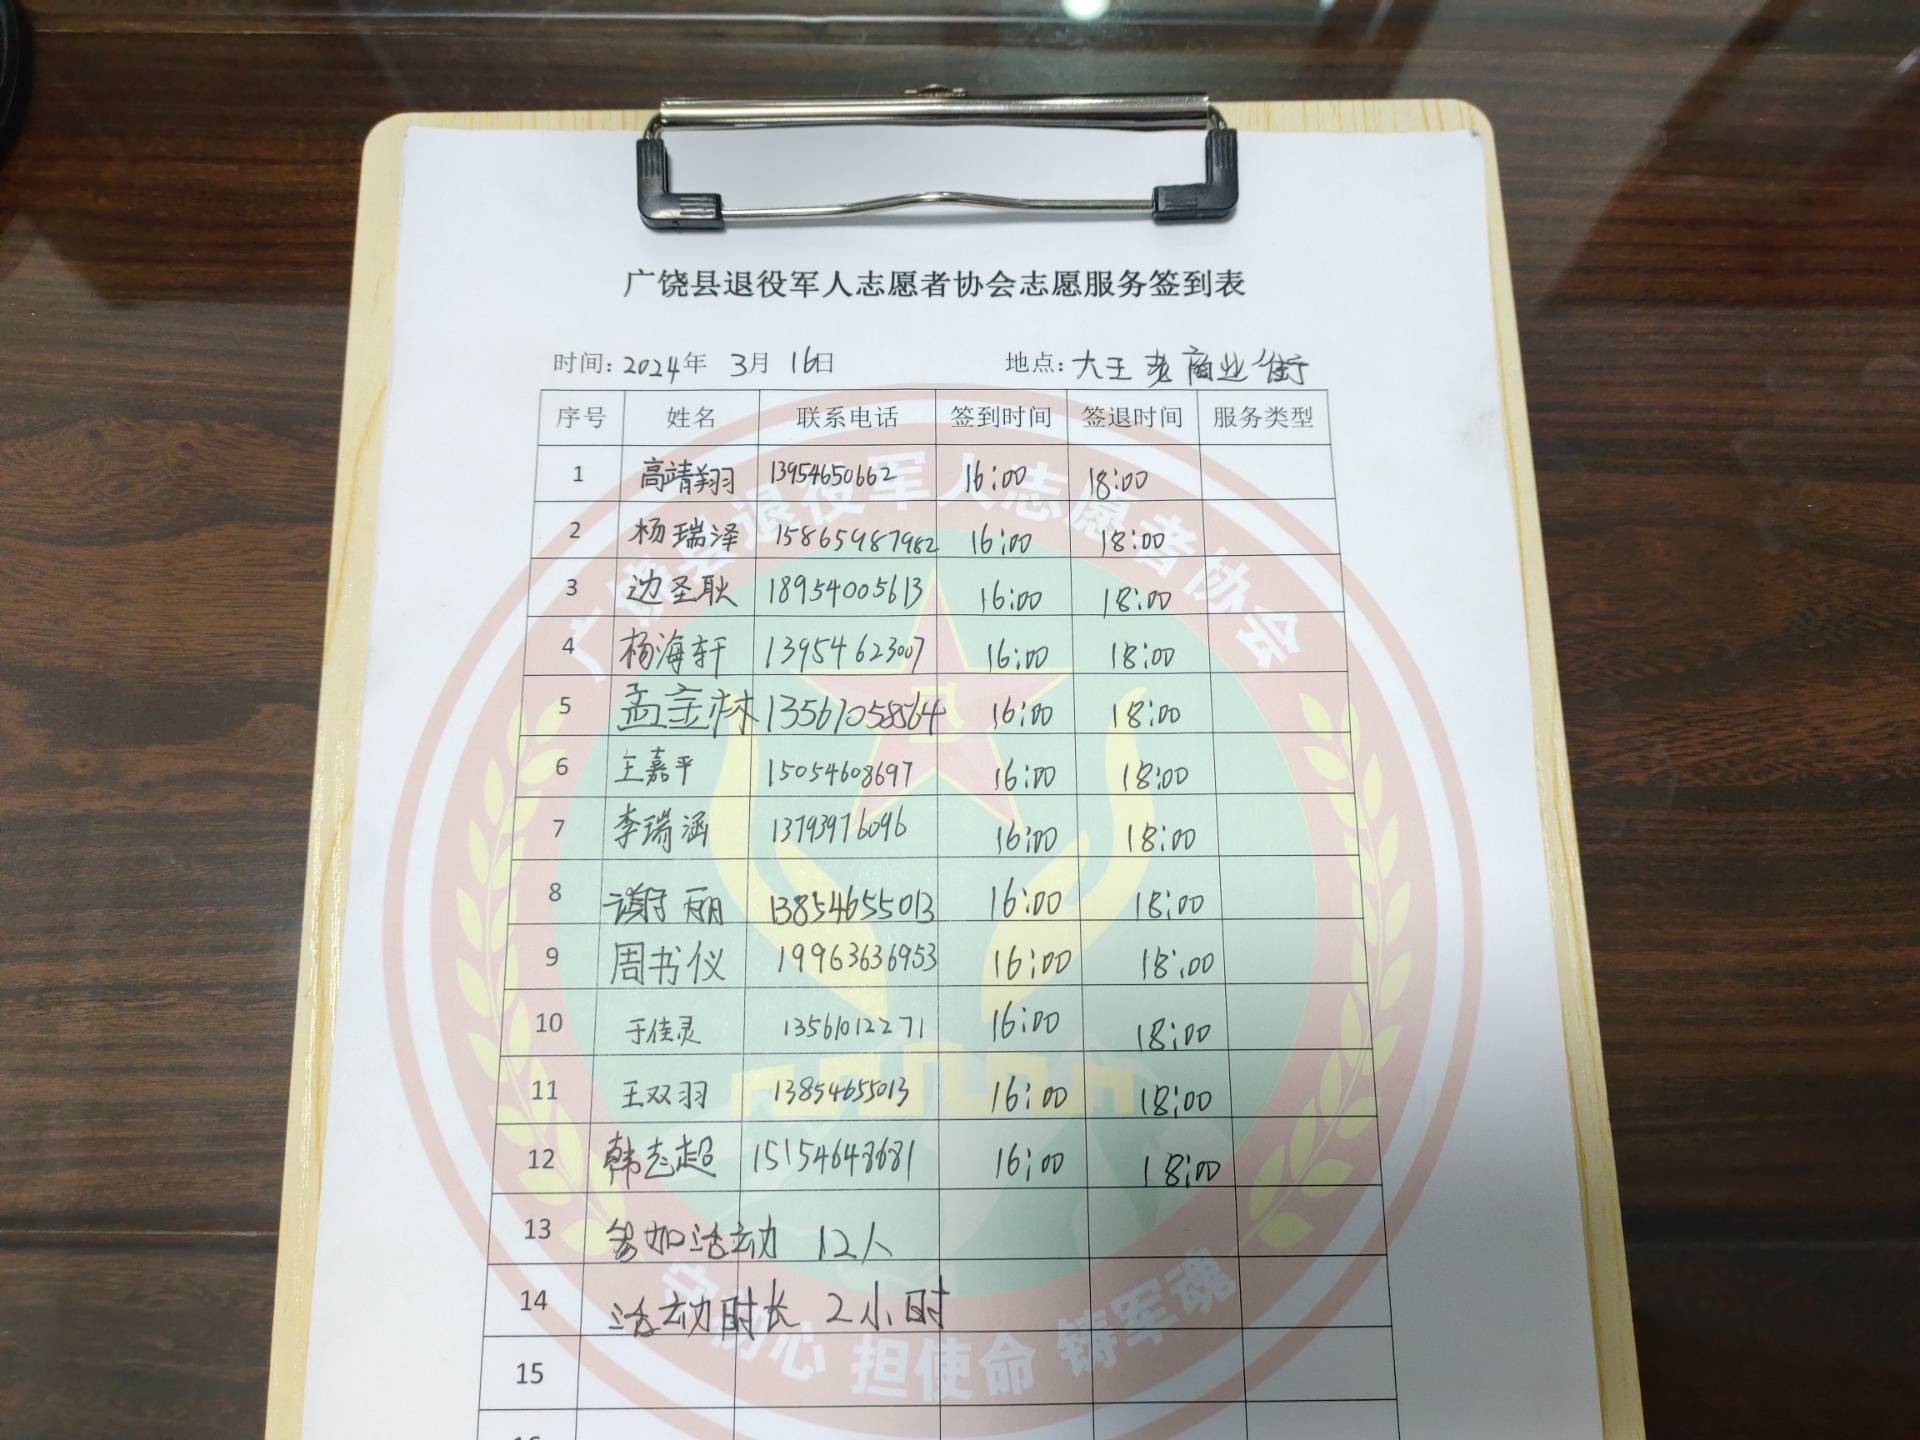 广饶县退役军人志愿者协会志愿服务签到表
时间: 2024年 3月 16日 地点: 大王老商业街
序号 姓名 联系电话 签到时间 签退时间 服务类型
1 高靖翔 13954650662 16:00 18:00
2 杨瑞泽 15865987982 16:00 18:00
3 边圣耿 18954005613 16:00 18:00
4 杨海轩 13954623007 16:00 18:00
5 孟金林 13561058564 16:00 18:00
6 王嘉平 15054608697 16:00 18:00
7 李瑞涵 13793976096 16:00 18:00
8 谢丽 13854655013 16:00 18:00
9 周书仪 19963636953 16:00 18:00
10 于佳灵 13561012271 16:00 18:00
11 王双羽 13854655013 16:00 18:00
12 韩志超 15154648681 16:00 18:00
13 参加活动 12人
14 活动时长 2小时
15
广饶县退役军人志愿者协会
守初心 担使命 铸军魂